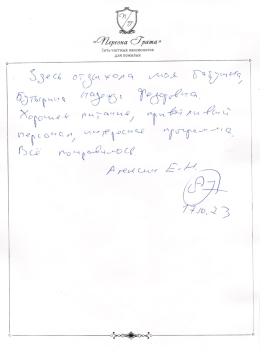 «Персона Грата»
Сеть частных пансионатов
для пожилых
Здесь отдыхала моя бабушка,
Бутырина Надежда Федоровна.
Хорошее питание, приветливый
персонал, интересная программа.
Всё понравилось
Алексин Е.Н.
17.10.23